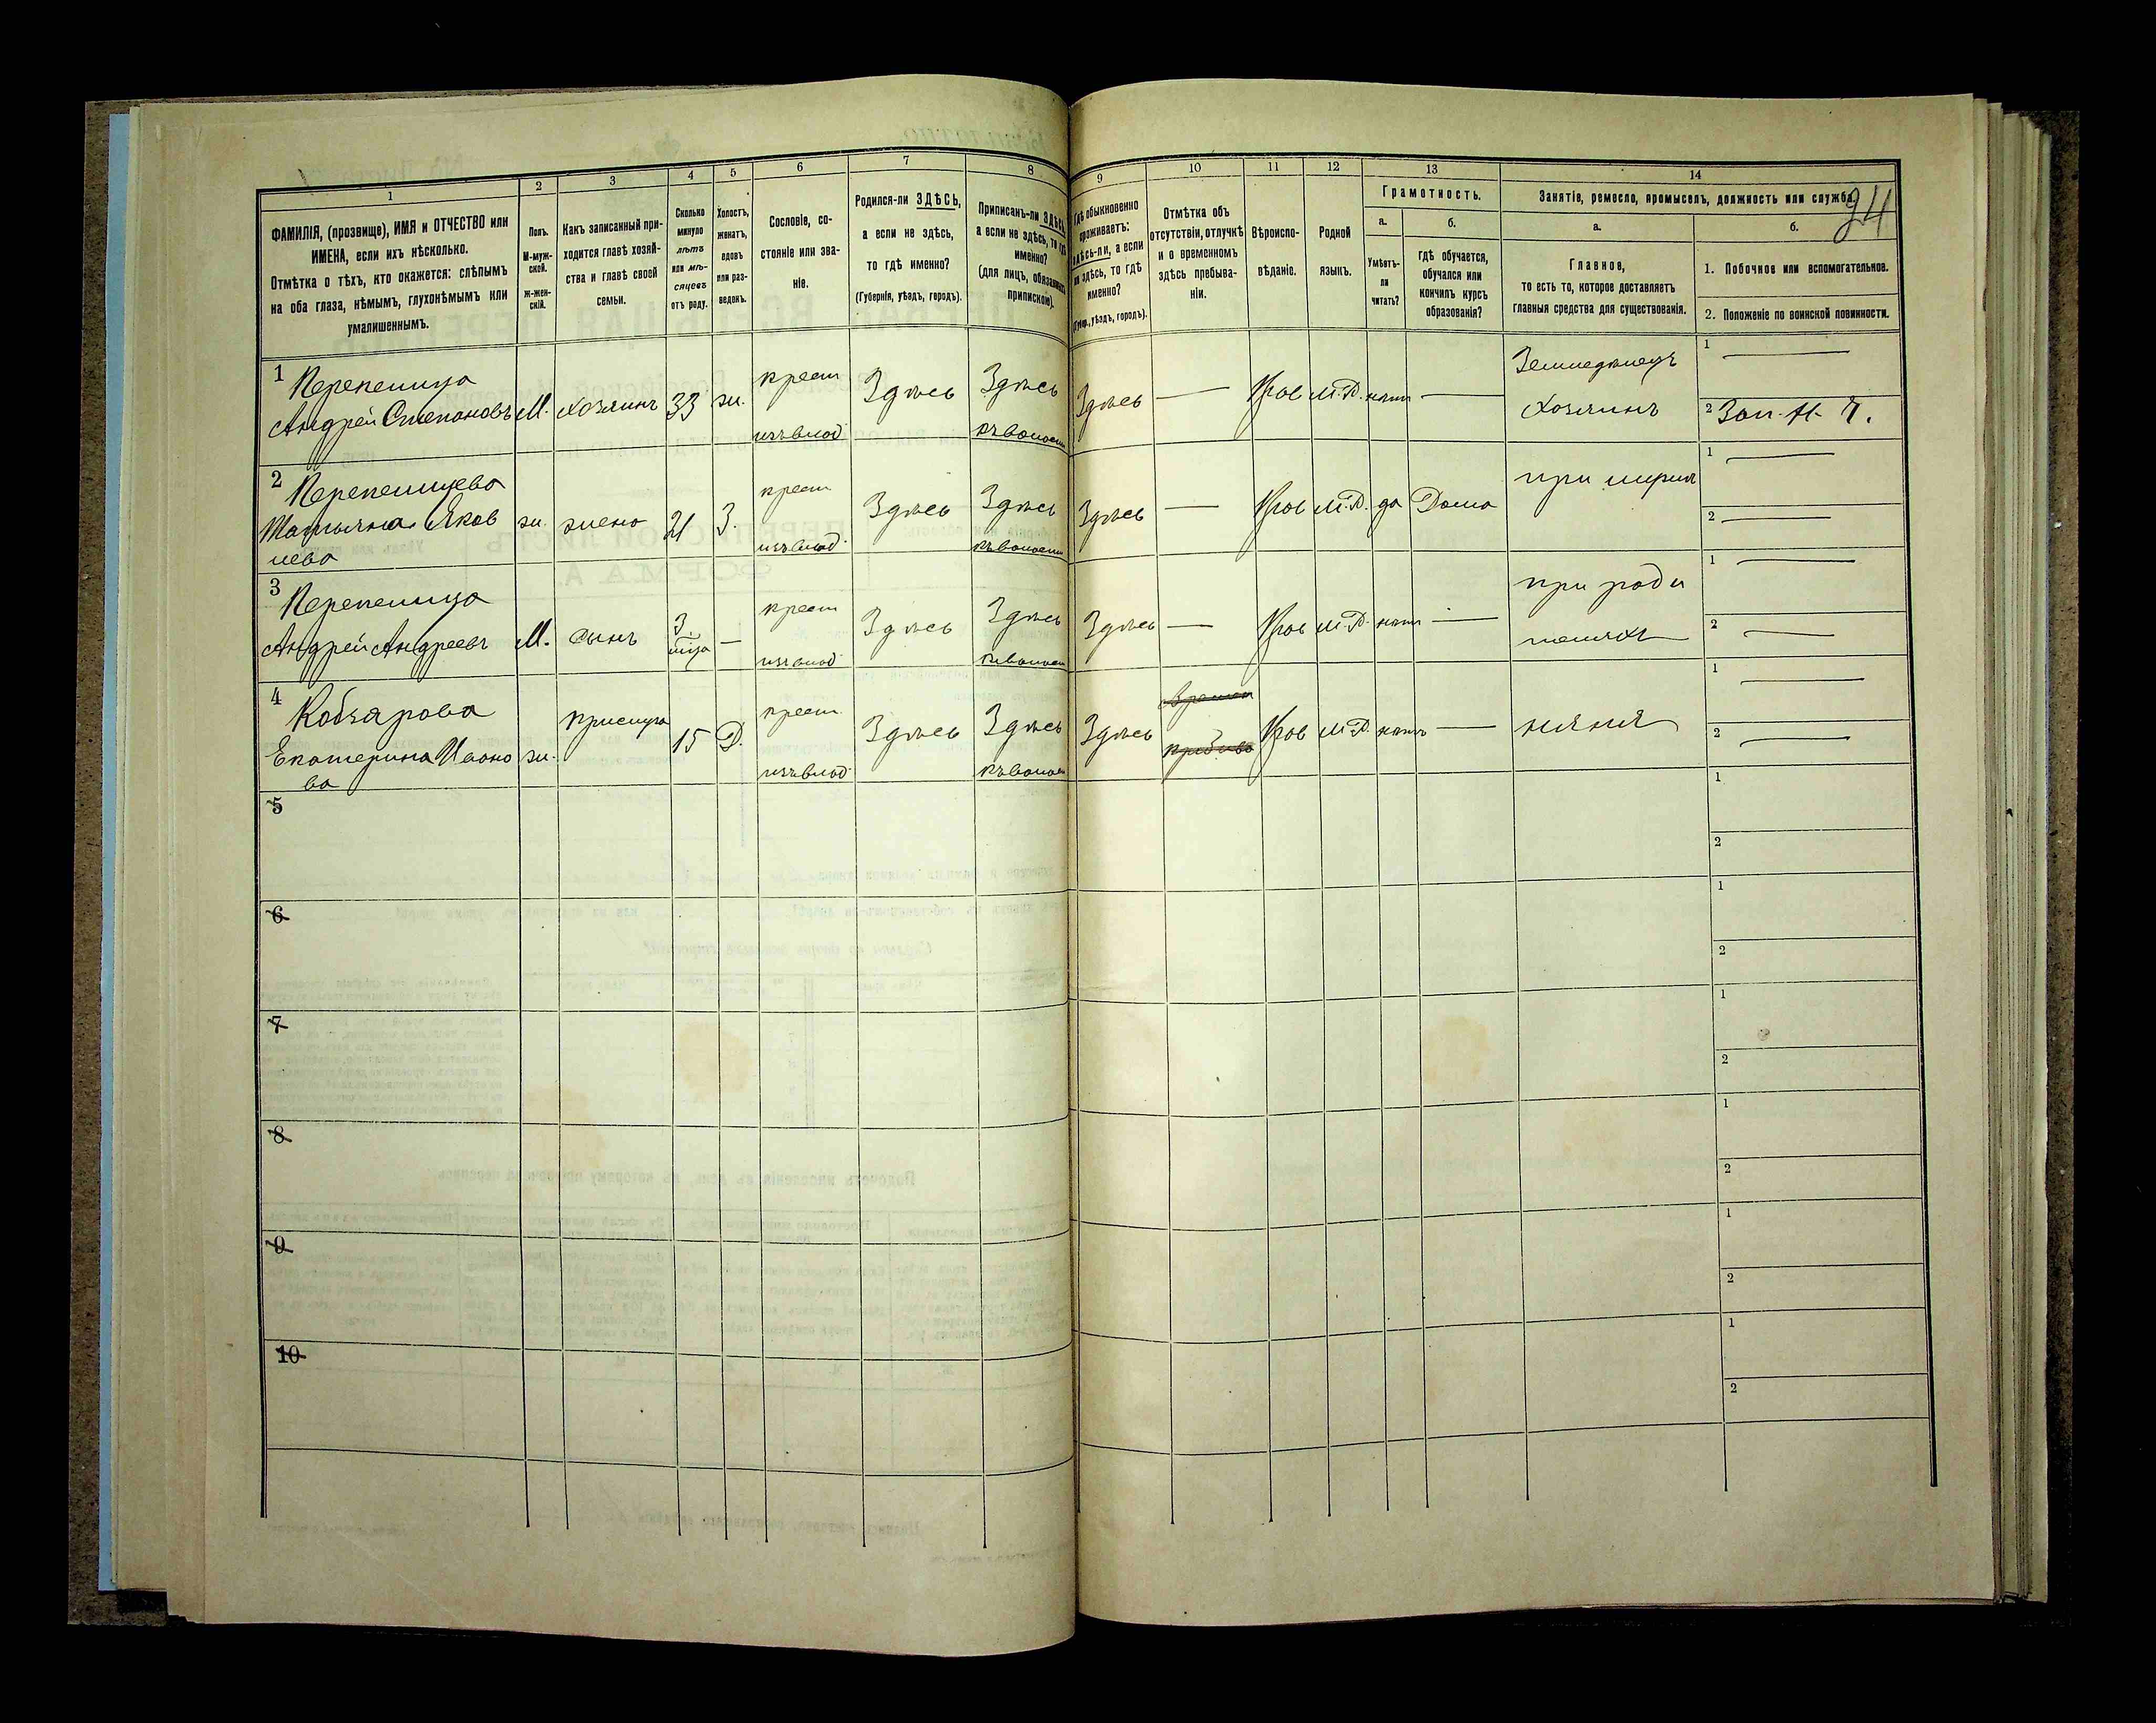 24
1 2 3 4 5 6 7 8 9 10 11 12 13 14
ФАМИЛІЯ, (прозвище), ИМЯ и ОТЧЕСТВО или
ИМЕНА, если ихъ нѣсколько.
Отмѣтка о тѣхъ, кто окажется: слѣпымъ
на оба глаза, нѣмымъ, глухонѣмымъ или
умалишеннымъ.
Полъ.
М-муж-
ской.
Ж-жен-
скій.
Какъ записанный при-
ходится главѣ хозяй-
ства и главѣ своей
семьи.
Сколько
минуло
лѣтъ
или мѣ-
сяцевъ
отъ роду.
Холостъ,
женатъ,
вдовъ
или раз-
веденъ.
Сословіе, со-
стояніе или зва-
ніе.
Родился-ли ЗДѢСЬ,
а если не здѣсь,
то гдѣ именно?
(Губернія, уѣздъ, городъ).
Приписанъ-ли ЗДѢСЬ,
а если не здѣсь, то гдѣ
именно?
(для лицъ, обязанныхъ
припискою).
Гдѣ обыкновенно
проживаетъ:
здѣсь-ли, а если
не здѣсь, то гдѣ
именно?
(Губер., уѣздъ, городъ).
Отмѣтка объ
отсутствіи, отлучкѣ
и о временномъ
здѣсь пребыва-
ніи.
Вѣроиспо-
вѣданіе.
Родной
языкъ.
Грамотность.
а.
Умѣетъ-
ли
читать?
б.
гдѣ обучается,
обучался или
кончилъ курсъ
образованія?
Занятіе, ремесло, промыселъ, должность или служба.
а.
Главное,
то есть то, которое доставляетъ
главныя средства для существованія.
б.
1. Побочное или вспомогательное.
2. Положеніе по воинской повинности.
1 Перепелица
Андрей Степановъ М. хозяинъ 33 ж. крест Здѣсь Здѣсь Здѣсь — Прав М.Р. нѣтъ — Земледѣлецъ
Хозяинъ
1 —
2 Зап. Н. Ч.
2 Перепелицева
Татьяна Яков
лева ж. жена 21 З. крест Здѣсь Здѣсь Здѣсь — Прав М.Р. да Дома при мужѣ
1 —
2 —
3 Перепелица
Андрей Андреевъ М. сынъ 3 — крест Здѣсь Здѣсь Здѣсь — Прав М.Р. нѣтъ — при роди
теляхъ
1 —
2 —
4 Кобзарова
Екатерина Ивано
ва ж. прислуга 15 Д. крест Здѣсь Здѣсь Здѣсь Прав М.Р. нѣтъ — няня
1 —
2 —
5
1
2
6
1
2
7
1
2
8
1
2
9
1
2
10
1
2